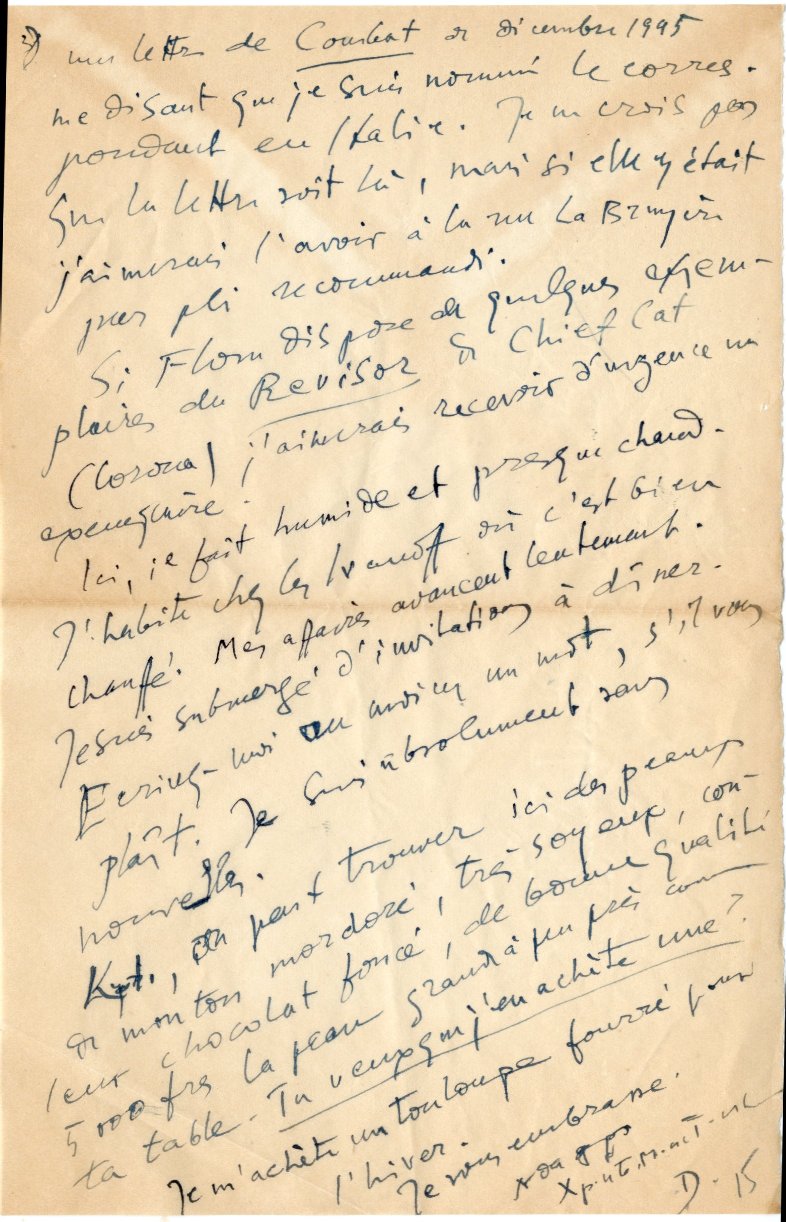 3)
une lettre de Combat de décembre 1945
me disant que je suis nommé le corres-
pondant en Italie. Je ne crois pas
que la lettre soit là, mais si elle y était
j'aimerais l'avoir à la rue La Bruyère
par pli recommandé.
Si Flom dispose de quelques exem-
plaires du Revisor de Chief Cat
(Corona) j'aimerais recevoir d'urgence un
exemplaire.
Ici, il fait humide et presque chaud.
J'habite chez les Ivanoff où c'est bien
chauffé. Mes affaires avancent lentement.
Je suis submergé d'invitations à dîner.
Ecrivez-moi au moins un mot, s'il vous
plaît. Je suis absolument sans
nouvelles.
on peut trouver ici des peaux
de mouton mordoré, très soyeux, cou-
leur chocolat foncé, de bonne qualité
5 000 frs la peau grande à peu près comme
ta table. Tu veux que j'en achète une?
Je m'achète un touloupe fourré pour
l'hiver.
Je vous embrasse.